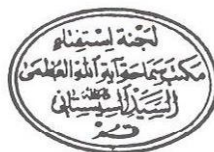 لجنة استفتاء
مكتب سماحة آية الله العظمى
السيد السيستاني
قم